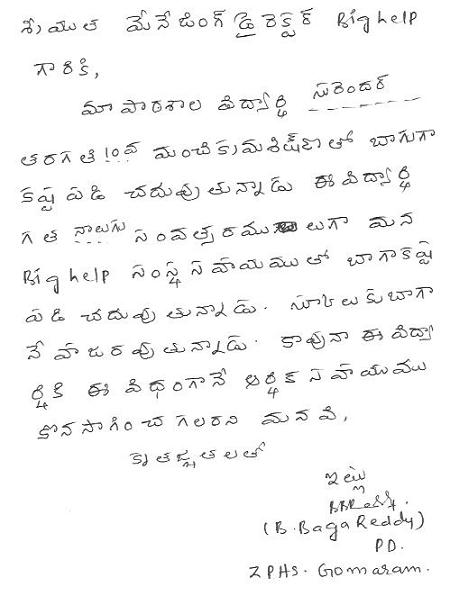 శ్రీయుత మేనేజింగ్ డైరెక్టర్ Big help
గారికి,
మా పాఠశాల విద్యార్థి సురేందర్
తరగతి 10వ మంచి క్రమశిక్షణతో బాగుగా
కష్టపడి చదువుతున్నాడు ఈ విద్యార్థి
గత నాలుగు సంవత్సరములుగా మన
Big help సంస్థ సహాయముతో బాగా కష్ట
పడి చదువుతున్నాడు. స్కూలుకు బాగా
నే హాజరవుతున్నాడు. కావునా ఈ విద్యా
ర్థికి ఈ విధంగానే ఆర్థిక సహాయము
కొనసాగించగలరని మనవి,
కృతజ్ఞతలతో
ఇట్లు
BBReddy.
(B. Baga Reddy)
PD.
ZPHS. Gomaram.